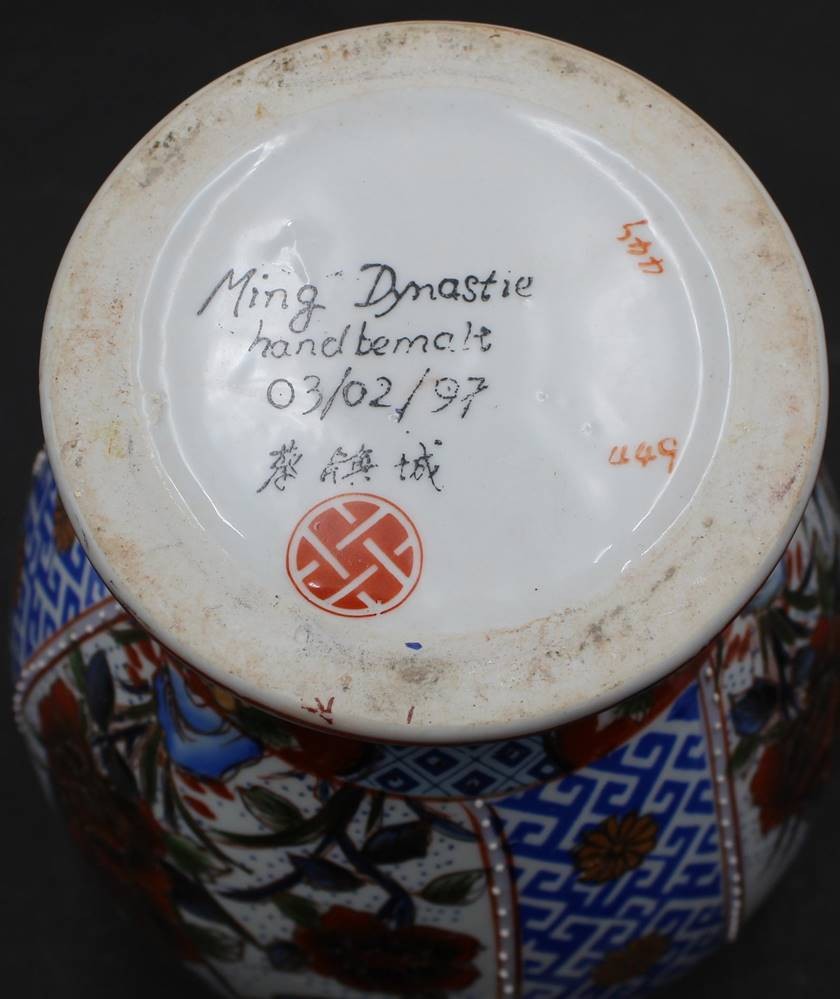 Ming Dynastie
handbemalt
03/02/97
蔡鎮城
449